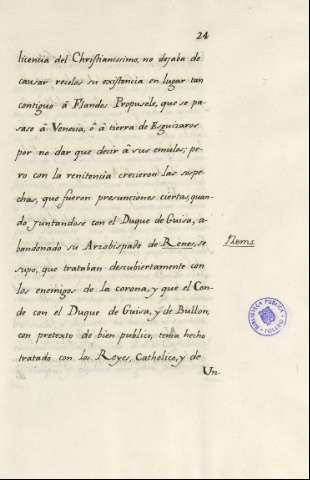 24
licencia del Christianissimo, no dejaba de
causar recelos su existencia en lugar tan
contiguo â Flandes. Propusele, que se pa-
sase â Venecia, ô â tierra de Esguizaros
por no dar que decir â sus emulos; pe-
ro con la renitencia crecieron las sospe-
chas, que fueron presunciones ciertas, quan-
do juntandose con el Duque de Guisa, a-
bandonado su Arzobispado de Renes, se
Rems
supo, que trataban descubiertamente con
los enemigos de la corona, y que el Con-
de con el Duque de Guisa, y de Bullon,
con pretexto de bien publico, tenia hecho
tratado con los Reyes, Catholico, y de
Un
BIBLIOTECA PUBLICA
TOLEDO